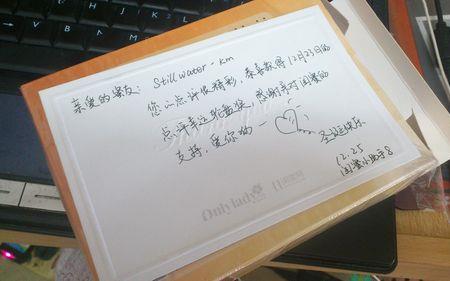 亲爱的蜜友: Stillwater-km
您的点评很精彩,恭喜获得12月23日的
点评幸运轮盘奖,感谢亲对闺蜜的
支持,爱你哟~
圣诞快乐
12.25
闺蜜小助手8
Onlylady